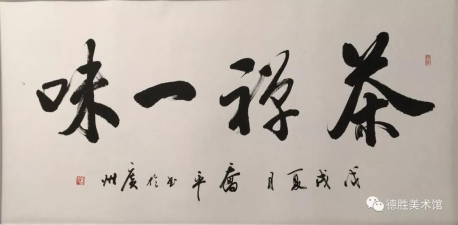 茶禅一味
戊戌夏月 乔平书於广州
德胜美术馆